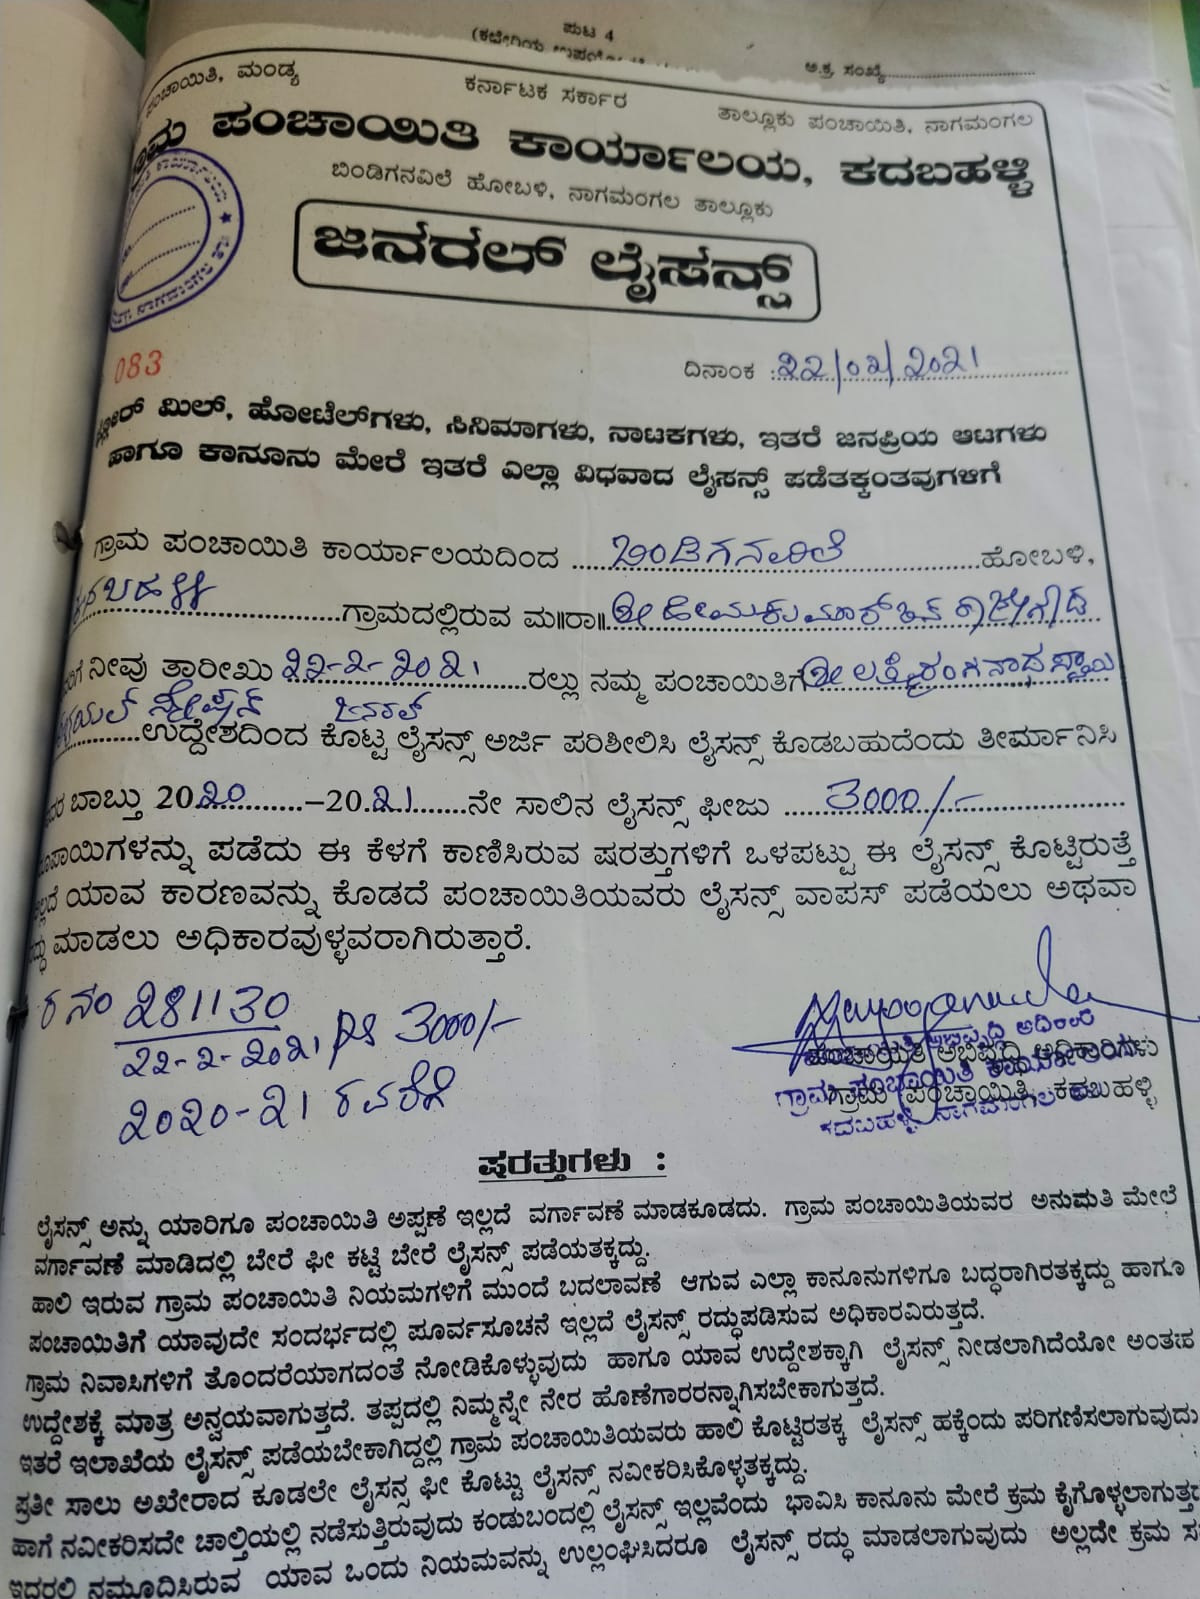 ಪುಟ 4
ಅ.ಕ್ರ. ಸಂಖ್ಯೆ
ಪಂಚಾಯಿತಿ, ಮಂಡ್ಯ
ಕರ್ನಾಟಕ ಸರ್ಕಾರ
ತಾಲ್ಲೂಕು ಪಂಚಾಯಿತಿ, ನಾಗಮಂಗಲ
ಪಂಚಾಯಿತಿ ಕಾರ್ಯಾಲಯ, ಕದಬಹಳ್ಳಿ
ಬಿಂಡಿಗನವಿಲೆ ಹೋಬಳಿ, ನಾಗಮಂಗಲ ತಾಲ್ಲೂಕು
ಜನರಲ್ ಲೈಸನ್ಸ್
083
ದಿನಾಂಕ :22/02/2021
ಮಿಲ್, ಹೋಟೆಲ್‌ಗಳು, ಸಿನಿಮಾಗಳು, ನಾಟಕಗಳು, ಇತರೆ ಜನಪ್ರಿಯ ಆಟಗಳು
ಹಾಗೂ ಕಾನೂನು ಮೇರೆ ಇತರೆ ಎಲ್ಲಾ ವಿಧವಾದ ಲೈಸನ್ಸ್ ಪಡೆತಕ್ಕಂತವುಗಳಿಗೆ
ಗ್ರಾಮ ಪಂಚಾಯಿತಿ ಕಾರ್ಯಾಲಯದಿಂದ ಬಿಂಡಿಗನವಿಲೆ ಹೋಬಳಿ,
ಗ್ರಾಮದಲ್ಲಿರುವ ಮ||ರಾ|| ಶ್ರೀ ಹೇಮಕುಮಾರ್
ನೀವು ತಾರೀಖು 22-2-2021 ರಲ್ಲು ನಮ್ಮ ಪಂಚಾಯಿತಿಗೆ ಶ್ರೀ ಲಕ್ಷ್ಮೀರಂಗನಾಥಸ್ವಾಮಿ
ಜನರಲ್
ಉದ್ದೇಶದಿಂದ ಕೊಟ್ಟ ಲೈಸನ್ಸ್ ಅರ್ಜಿ ಪರಿಶೀಲಿಸಿ ಲೈಸನ್ಸ್ ಕೊಡಬಹುದೆಂದು ತೀರ್ಮಾನಿಸಿ
ಬಾಬ್ತು 2020 –2021 ನೇ ಸಾಲಿನ ಲೈಸನ್ಸ್ ಫೀಜು 3000/-
ರೂಪಾಯಿಗಳನ್ನು ಪಡೆದು ಈ ಕೆಳಗೆ ಕಾಣಿಸಿರುವ ಷರತ್ತುಗಳಿಗೆ ಒಳಪಟ್ಟು ಈ ಲೈಸನ್ಸ್ ಕೊಟ್ಟಿರುತ್ತೆ
ಯಾವ ಕಾರಣವನ್ನು ಕೊಡದೆ ಪಂಚಾಯಿತಿಯವರು ಲೈಸನ್ಸ್ ವಾಪಸ್ ಪಡೆಯಲು ಅಥವಾ
ರದ್ದು ಮಾಡಲು ಅಧಿಕಾರವುಳ್ಳವರಾಗಿರುತ್ತಾರೆ.
ರ ನಂ 281130
22-2-2021 RS 3000/-
2020-21 ರವರೆಗೆ
ಪಂಚಾಯಿತಿ ಅಭಿವೃದ್ಧಿ ಅಧಿಕಾರಿಗಳು
ಗ್ರಾಮ ಪಂಚಾಯಿತಿ, ಕದಬಹಳ್ಳಿ
ಷರತ್ತುಗಳು :
ಲೈಸನ್ಸ್ ಅನ್ನು ಯಾರಿಗೂ ಪಂಚಾಯಿತಿ ಅಪ್ಪಣೆ ಇಲ್ಲದೆ ವರ್ಗಾವಣೆ ಮಾಡಕೂಡದು. ಗ್ರಾಮ ಪಂಚಾಯಿತಿಯವರ ಅನುಮತಿ ಮೇಲೆ
ವರ್ಗಾವಣೆ ಮಾಡಿದಲ್ಲಿ ಬೇರೆ ಫೀ ಕಟ್ಟಿ ಬೇರೆ ಲೈಸನ್ಸ್ ಪಡೆಯತಕ್ಕದ್ದು.
ಹಾಲಿ ಇರುವ ಗ್ರಾಮ ಪಂಚಾಯಿತಿ ನಿಯಮಗಳಿಗೆ ಮುಂದೆ ಬದಲಾವಣೆ ಆಗುವ ಎಲ್ಲಾ ಕಾನೂನುಗಳಿಗೂ ಬದ್ಧರಾಗಿರತಕ್ಕದ್ದು ಹಾಗೂ
ಪಂಚಾಯಿತಿಗೆ ಯಾವುದೇ ಸಂದರ್ಭದಲ್ಲಿ ಪೂರ್ವಸೂಚನೆ ಇಲ್ಲದೆ ಲೈಸನ್ಸ್ ರದ್ದುಪಡಿಸುವ ಅಧಿಕಾರವಿರುತ್ತದೆ.
ಗ್ರಾಮ ನಿವಾಸಿಗಳಿಗೆ ತೊಂದರೆಯಾಗದಂತೆ ನೋಡಿಕೊಳ್ಳುವುದು ಹಾಗೂ ಯಾವ ಉದ್ದೇಶಕ್ಕಾಗಿ ಲೈಸನ್ಸ್ ನೀಡಲಾಗಿದೆಯೋ ಅಂತಹ
ಉದ್ದೇಶಕ್ಕೆ ಮಾತ್ರ ಅನ್ವಯವಾಗುತ್ತದೆ. ತಪ್ಪದಲ್ಲಿ ನಿಮ್ಮನ್ನೇ ನೇರ ಹೊಣೆಗಾರರನ್ನಾಗಿಸಬೇಕಾಗುತ್ತದೆ.
ಇತರೆ ಇಲಾಖೆಯ ಲೈಸನ್ಸ್ ಪಡೆಯಬೇಕಾಗಿದ್ದಲ್ಲಿ ಗ್ರಾಮ ಪಂಚಾಯಿತಿಯವರು ಹಾಲಿ ಕೊಟ್ಟಿರತಕ್ಕ ಲೈಸನ್ಸ್ ಹಕ್ಕೆಂದು ಪರಿಗಣಿಸಲಾಗುವುದು
ಪ್ರತೀ ಸಾಲು ಅಖೇರಾದ ಕೂಡಲೇ ಲೈಸನ್ಸ ಫೀ ಕೊಟ್ಟು ಲೈಸನ್ಸ್ ನವೀಕರಿಸಿಕೊಳ್ಳತಕ್ಕದ್ದು.
ಹಾಗೆ ನವೀಕರಿಸದೇ ಚಾಲ್ತಿಯಲ್ಲಿ ನಡೆಸುತ್ತಿರುವುದು ಕಂಡುಬಂದಲ್ಲಿ ಲೈಸನ್ಸ್ ಇಲ್ಲವೆಂದು ಭಾವಿಸಿ ಕಾನೂನು ಮೇರೆ ಕ್ರಮ ಕೈಗೊಳ್ಳಲಾಗುತ್ತದೆ
ಇದರಲ್ಲಿ ನಮೂದಿಸಿರುವ ಯಾವ ಒಂದು ನಿಯಮವನ್ನು ಉಲ್ಲಂಘಿಸಿದರೂ ಲೈಸನ್ಸ್ ರದ್ದು ಮಾಡಲಾಗುವುದು ಅಲ್ಲದೇ ಕ್ರಮ